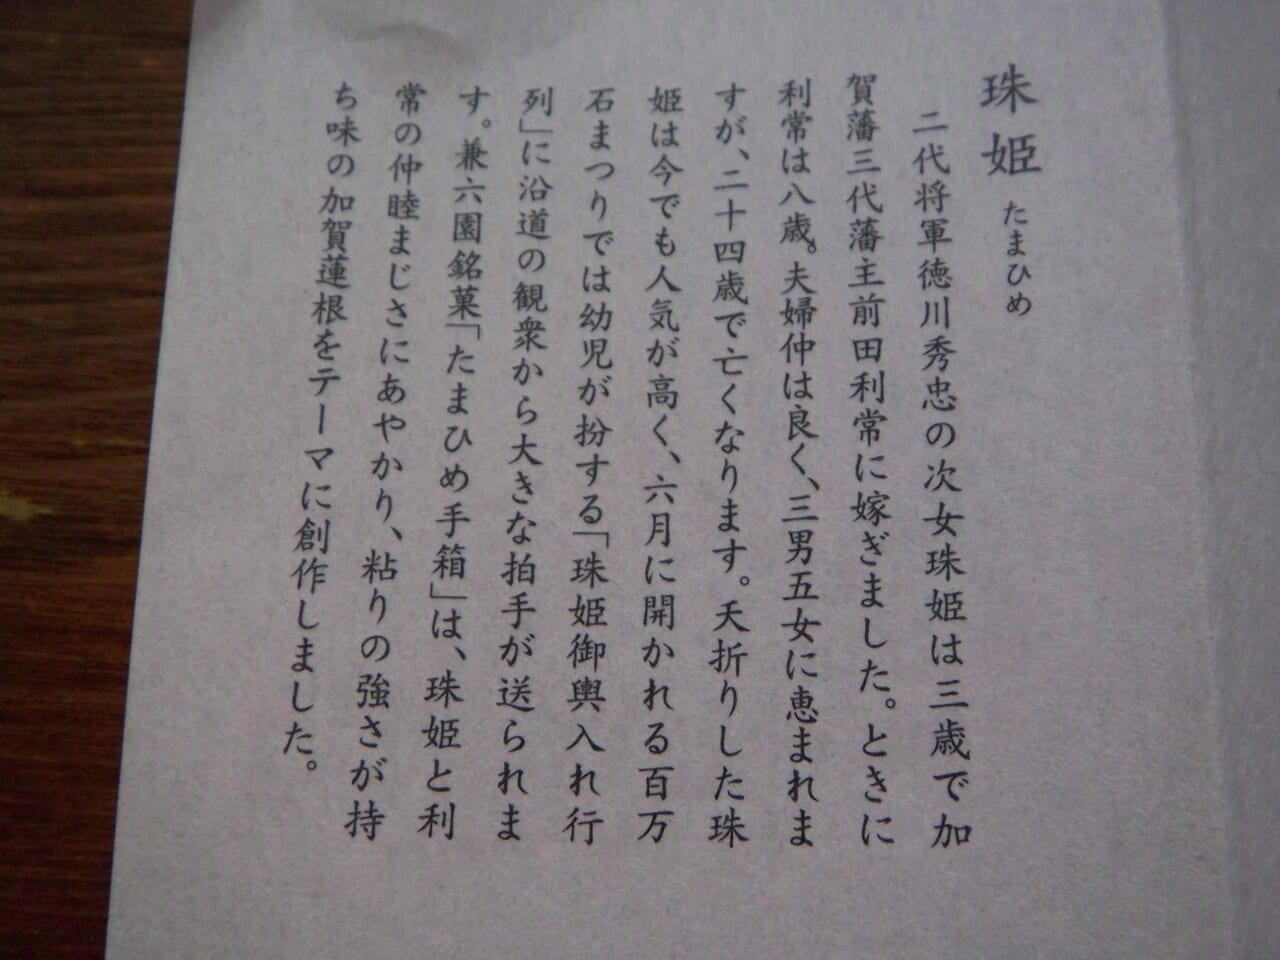 珠姫 たまひめ
二代将軍徳川秀忠の次女珠姫は三歳で加
賀藩三代藩主前田利常に嫁ぎました。ときに
利常は八歳。夫婦仲は良く、三男五女に恵まれま
すが、二十四歳で亡くなります。夭折りした珠
姫は今でも人気が高く、六月に開かれる百万
石まつりでは幼児が扮する「珠姫御輿入れ行
列」に沿道の観衆から大きな拍手が送られま
す。兼六園銘菓「たまひめ手箱」は、珠姫と利
常の仲睦まじさにあやかり、粘りの強さが持
ち味の加賀蓮根をテーマに創作しました。